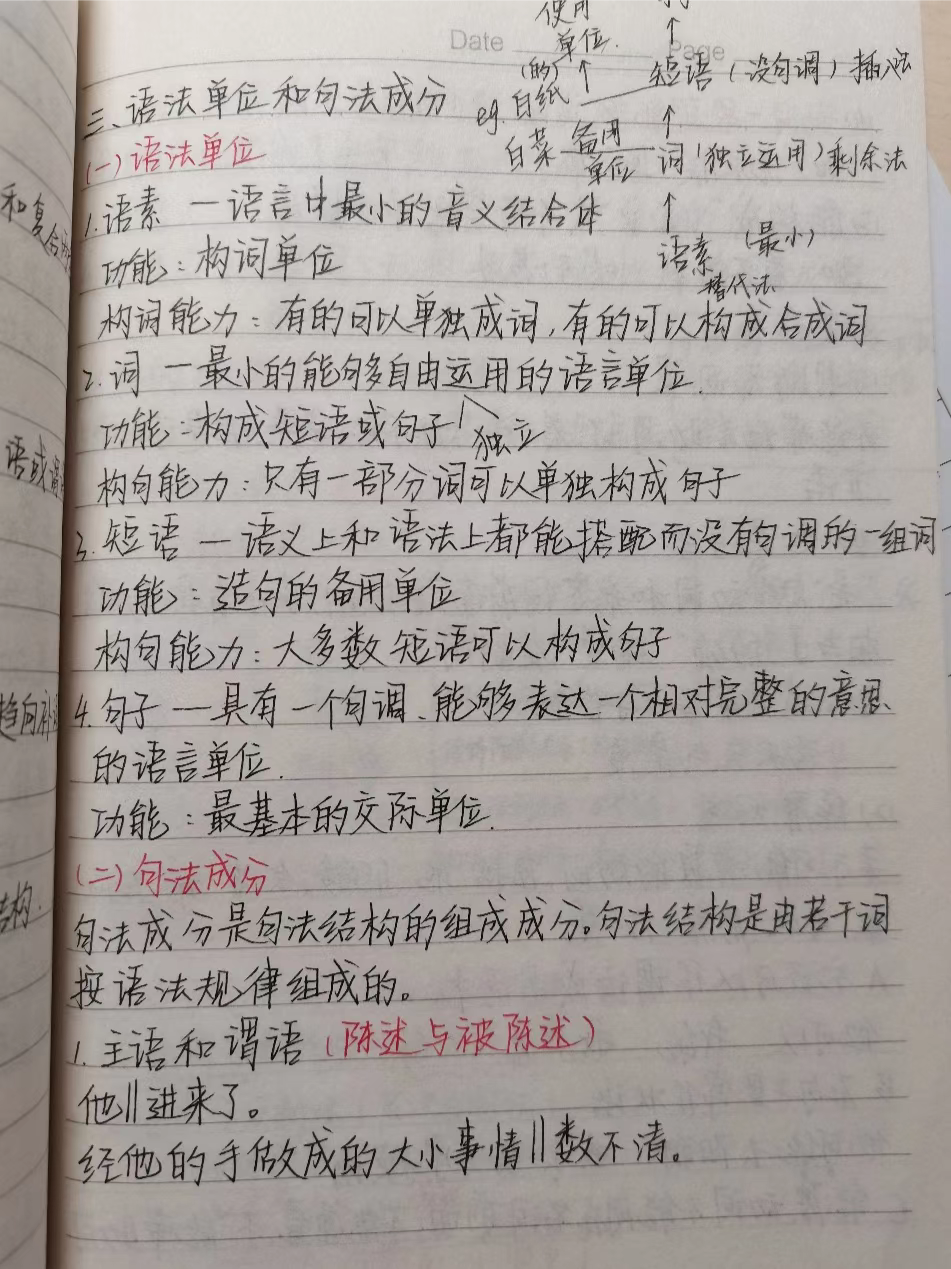 使用
单位.
Date
Page
(的)
短语（没句调）插入法
eg.白纸
三、语法单位和句法成分
白菜 备用
单位 词（独立运用）剩余法
(一)语法单位
和复合
1.语素 — 语言中最小的音义结合体
语素（最小）
功能：构词单位
替代法
构词能力：有的可以单独成词,有的可以构成合成词
2.词 — 最小的能够自由运用的语言单位.
功能：构成短语或句子 独立
语或谓
构句能力：只有一部分词可以单独构成句子
3.短语 — 语义上和语法上都能搭配而没有句调的一组词
功能：造句的备用单位
构句能力：大多数短语可以构成句子
趋向补语
4.句子 — 具有一个句调、能够表达一个相对完整的意思
的语言单位.
功能：最基本的交际单位.
(二)句法成分
结构.
句法成分是句法结构的组成成分。句法结构是由若干词
按语法规律组成的。
1.主语和谓语（陈述与被陈述）
他||进来了。
经他的手做成的大小事情||数不清。